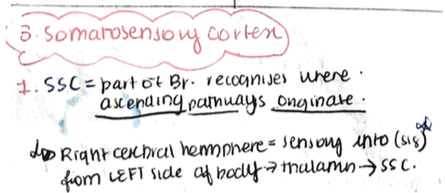 3. Somatosensory cortex
1. SSC = part of Br. recognises where
ascending pathways originate.
Right cerebral hemisphere = sensory into (sis)
from LEFT side of body → thalamn → SSC.